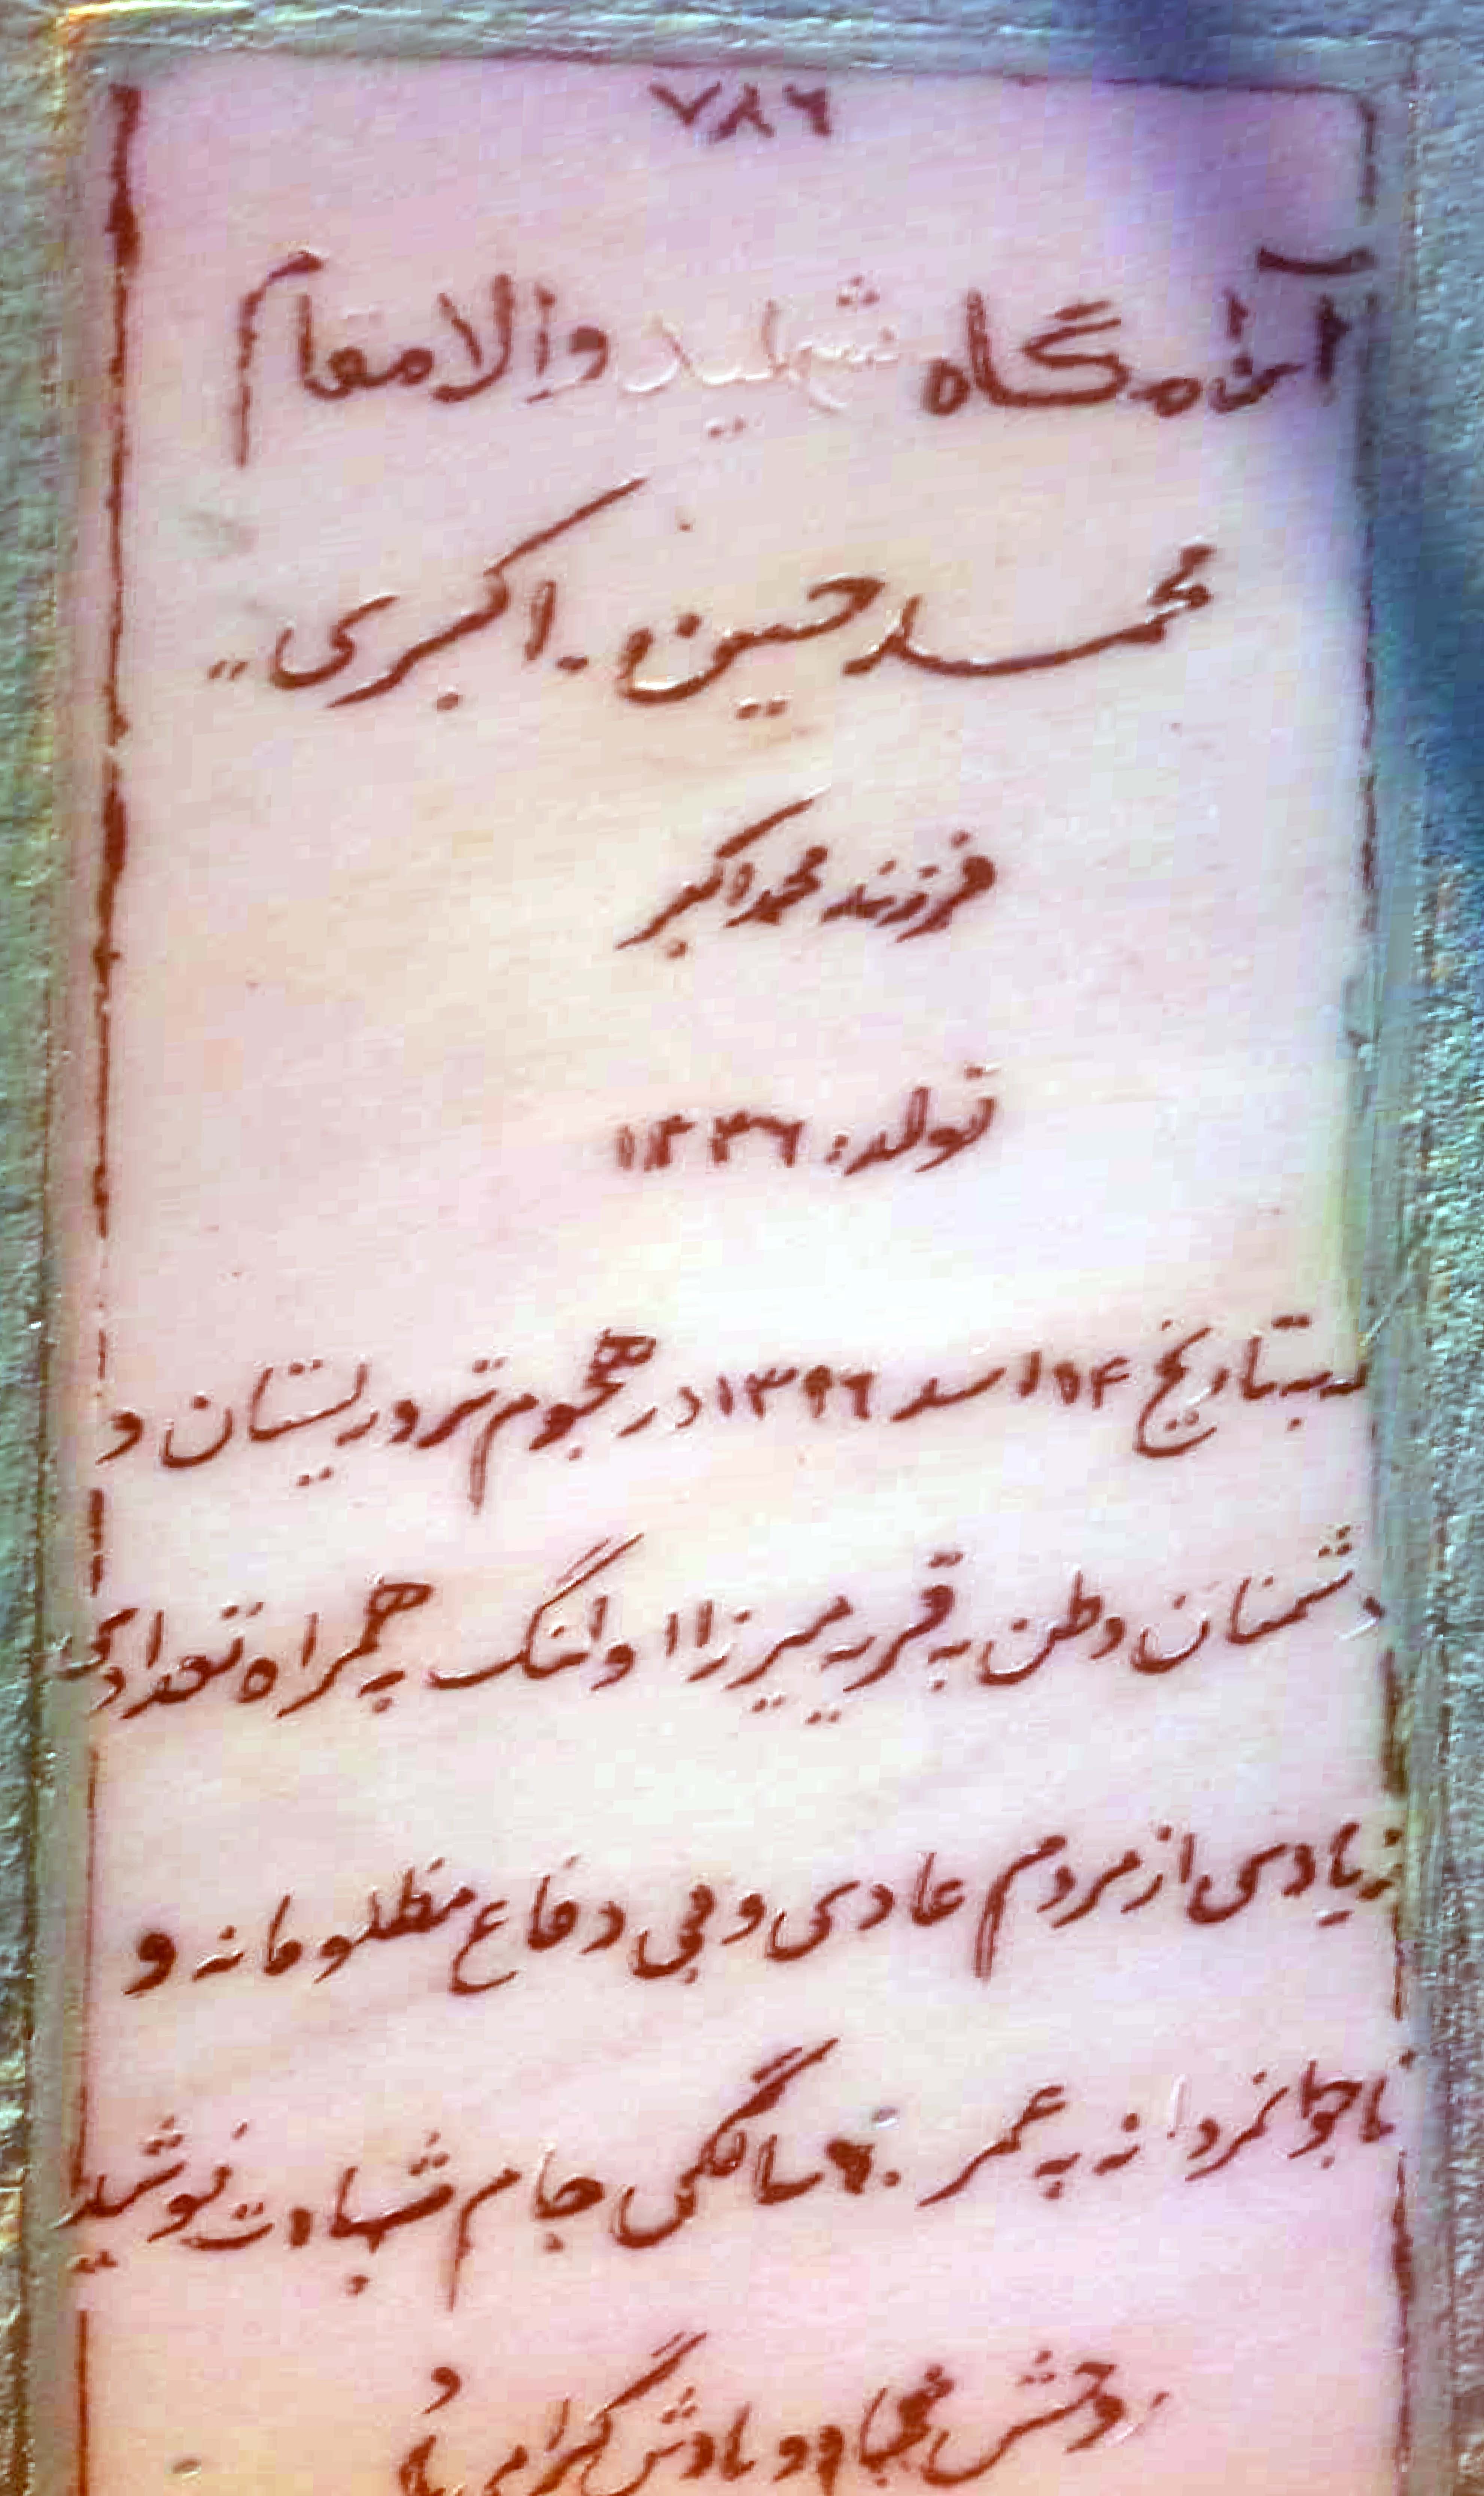 ۷۸۶
آرامگاه شهید والامقام
محمد حسین - اکبری "
فرزند محمد اکبر
تولد: ۱۳۳۶
به تاریخ ۱۴ اسد ۱۳۹۶ در هجوم تروریستان و
دشمنان وطن به قریه میرزا اولنگ به همراه تعدادی
زیادی از مردم عادی و فی دفاع مظلومانه و
ناجوانمردانه به عمر ۶۰ سالگی جام شهادت نوشید
روحش شاد و یادش گرامی باد